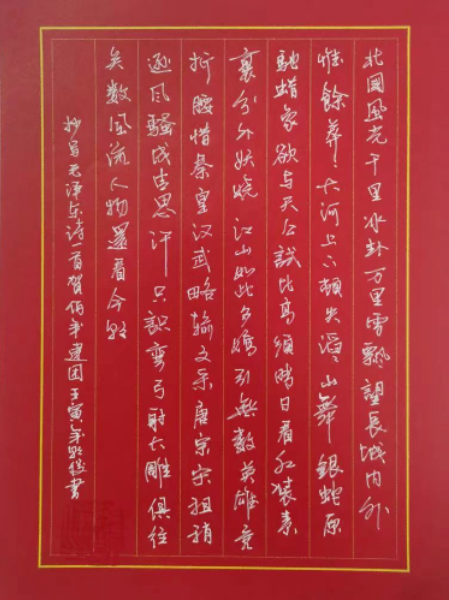 北國風光千里冰封万里雪飘望長城内外
惟餘莽々大河上下頓失滔々山舞銀蛇原
馳蜡象欲与天公試比高須晴日看红装素
裹分外妖娆江山如此多嬌引無數英雄竞
折腰惜秦皇汉武略输文采唐宗宋祖稍
逊风骚成吉思汗只識弯弓射大雕俱往
矣数风流人物還看今朝
抄写毛泽东诗一首贺佰年建团壬寅年书